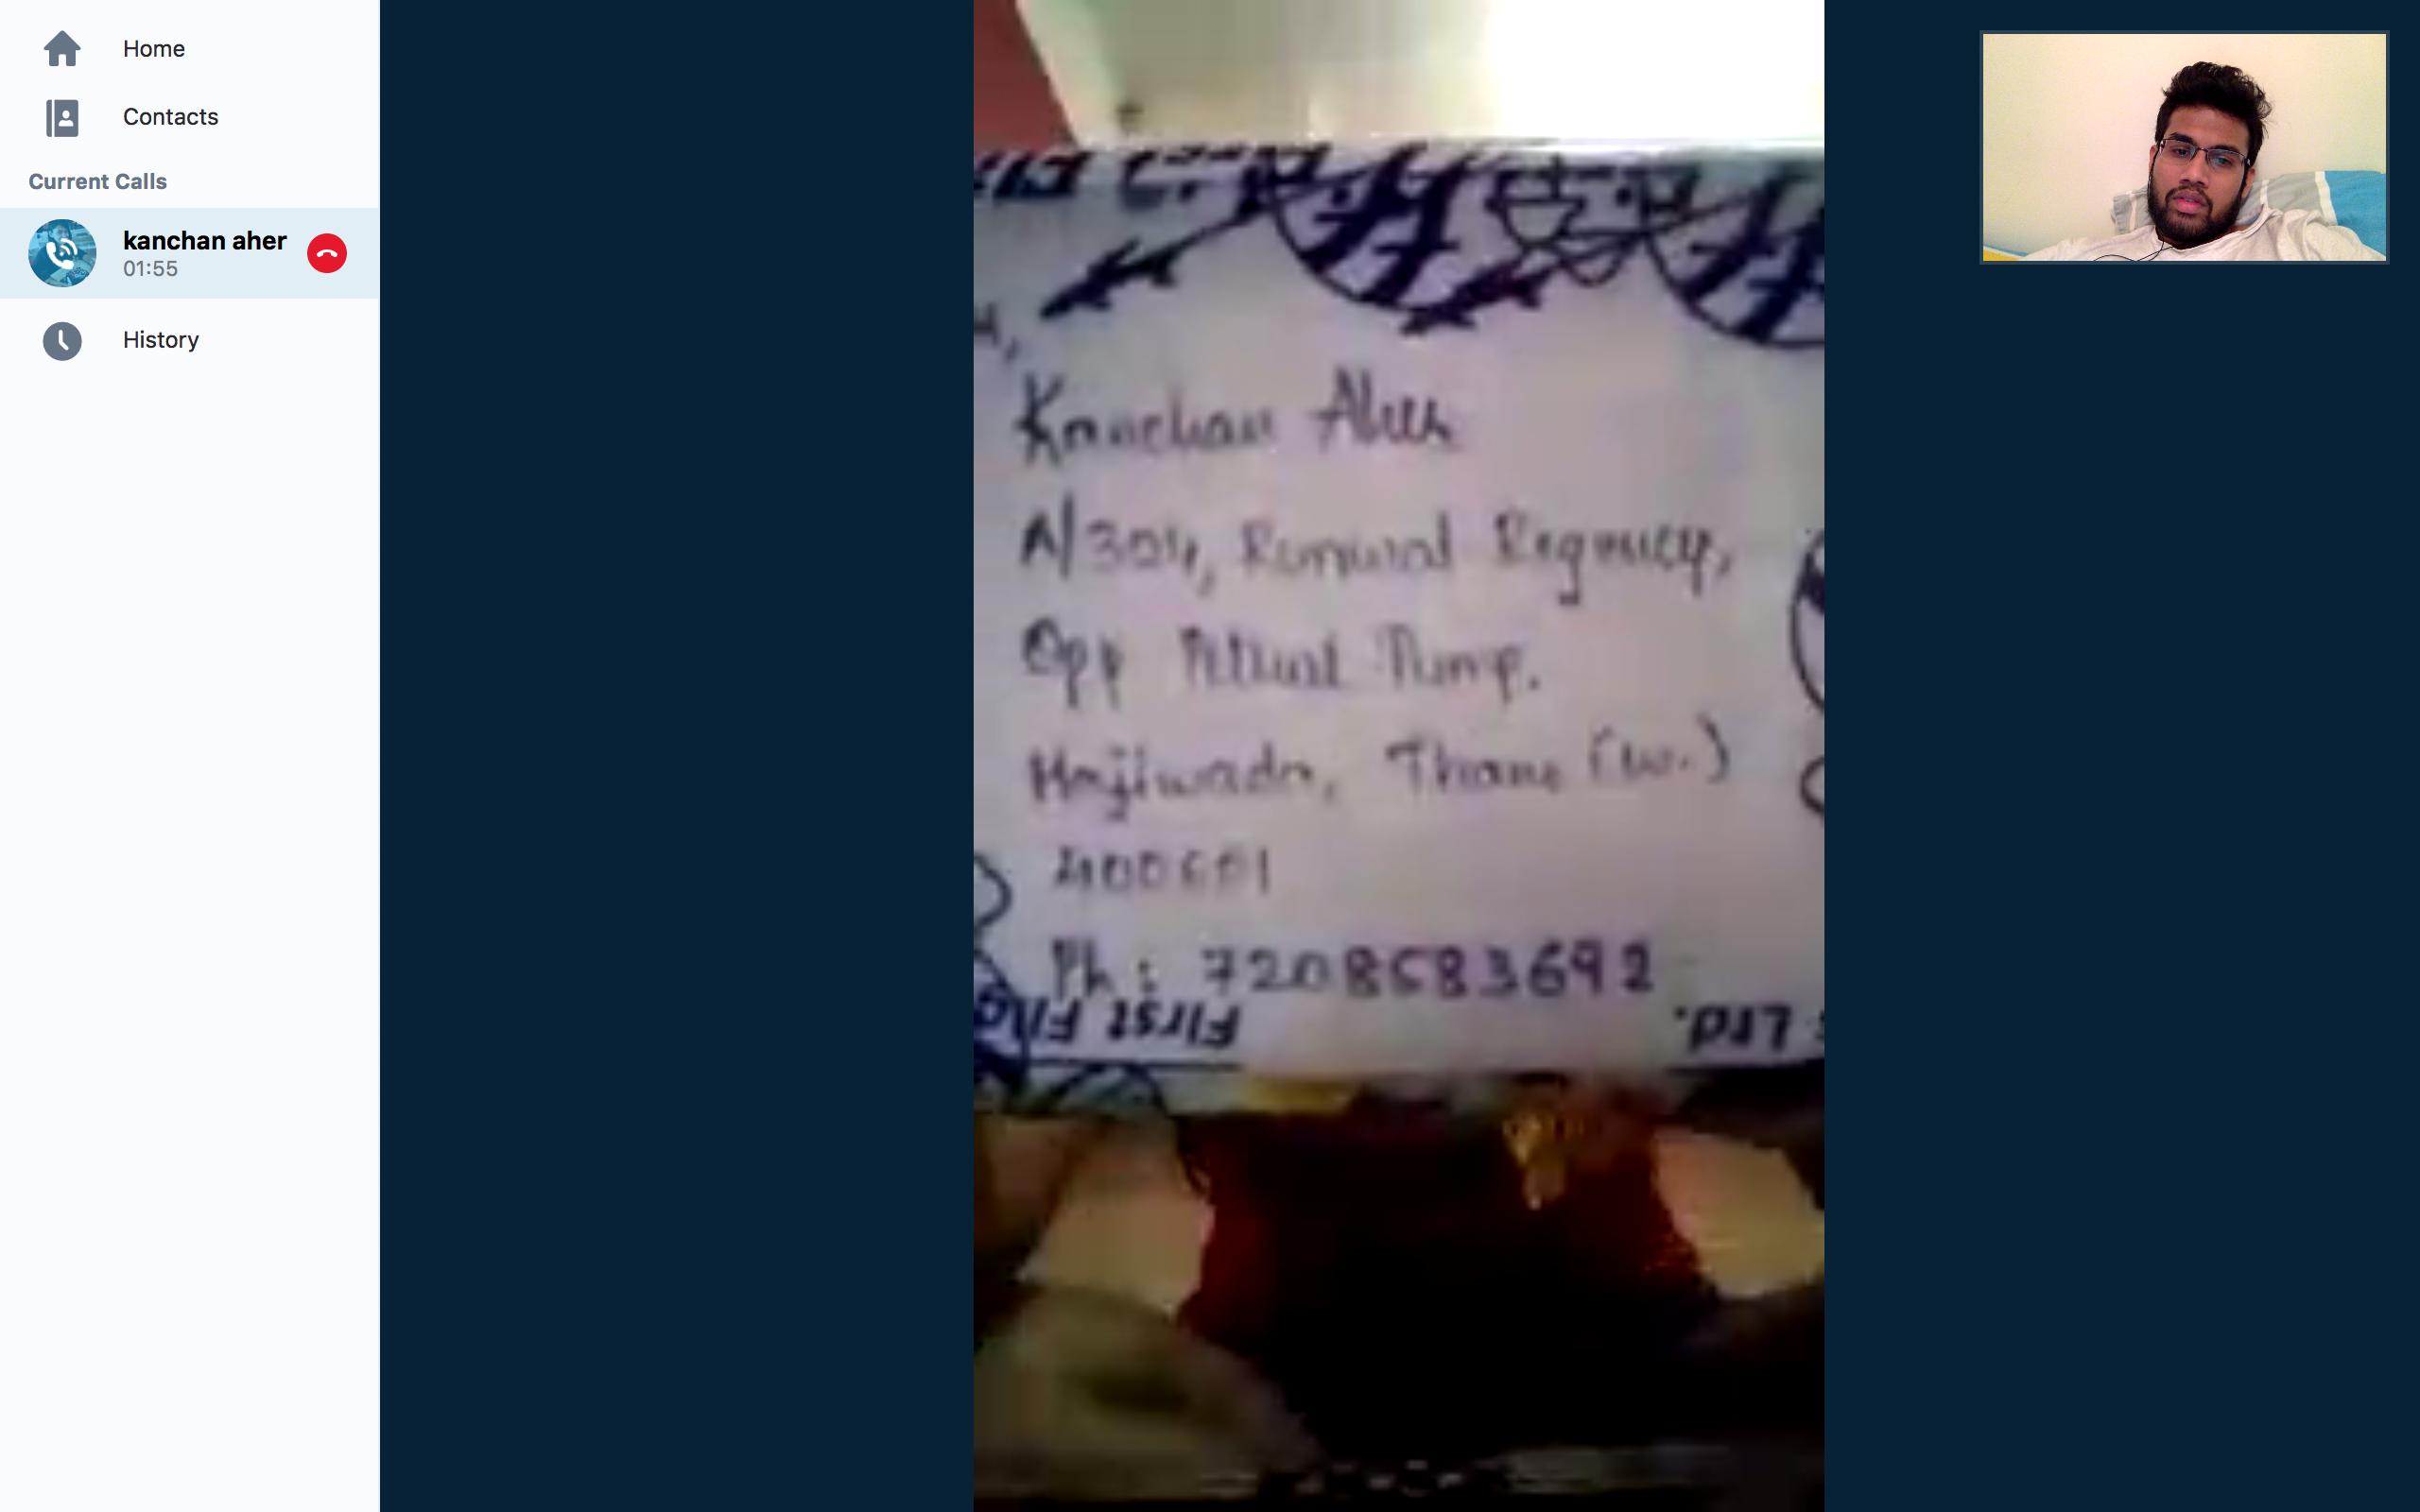 Home
Contacts
Current Calls
kanchan aher
01:55
History
Kanchan Aher
A/304, Regency,
Opp Petrol Pump.
Majiwada, Thane (w.)
400601
Ph: 7208583692
First Flig
Ltd.